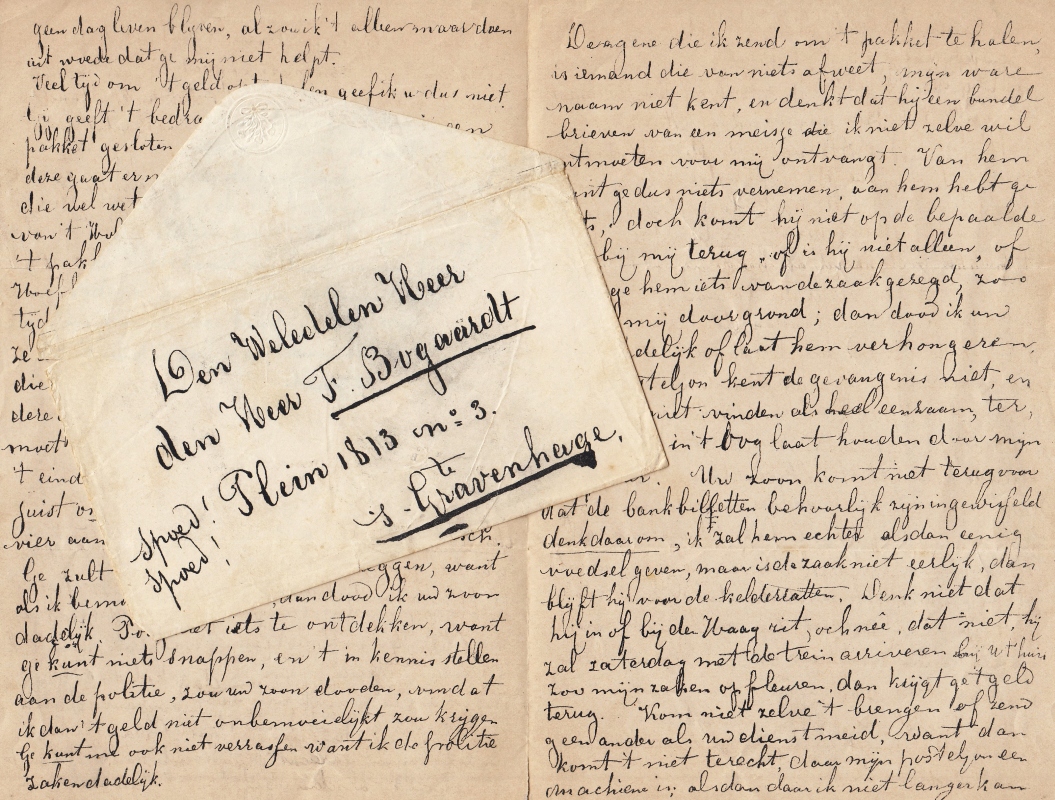 geen dag leven blyven, al zou ik 't alleen maar doen
uit woede dat ge mij niet helpt.
Veel tyd om 't geld op te
len geef ik u dus niet
geeft 't bedra
pakket gesloten
een
deze gaat er m
die wel wet
van 't
't pakk
tyd
ze
die
dere
moet
't eind
juist
vier aan
sch.
Ge zult
eggen, want
als ik bem
dan dood ik uw zoon
dadelyk.
iets te ontdekken, want
ge kunt niets snappen, en 't in kennis stellen
aan de politie, zou uw zoon dooden, omdat
ik dan 't geld niet onbemoeielijkt zou krijgen
Ge kunt me ook niet verrassen want ik de politie
zaken dadelijk.
Den Weledelen Heer
den Heer F. Bogaardt
Plein 1813 no: 3.
s-Gravenhage.
te
Spoed!
Spoed!
Degene die ik zend om 't pakket te halen,
is iemand die van niets afweet, mijn ware
naam niet kent, en denkt dat hij een bundel
brieven van een meisje die ik niet zelve wil
ntmoeten voor mij ontvangt. Van hem
unt ge dus niets vernemen, aan hem hebt ge
ts, doch komt hij niet op de bepaalde
bij mij terug, of is hij niet alleen, of
ge hem iets van de zaak gezegd, zoo
mij doorgrond; dan dood ik uw
delijk of laat hem verhongeren,
steljon kent de gevangenis niet, en
niet vinden als heel eenzaam, ter,
in 't oog laat houden door mijn
Uw zoon komt niet terug voor
dat de bankbilfetten behoorlijk zijn ingewisfeld
denk daarom, ik zal hem echter alsdan eenig
voedsel geven, maar is de zaak niet eerlijk, dan
blijft hij voor de kelderratten. Denk niet dat
hij in of bij den Haag zit, och nee, dat niet, hij
zal zaterdag met de trein arriveren bij u thuis
zoo mijn zaken opfleuren, dan krijgt ge 't geld
terug. Kom niet zelve 't brengen of zend
geen ander als uw dienstmeid, want dan
komt 't niet terecht, daar mijn posteljon een
machiene is; alsdan daar ik niet langer kan